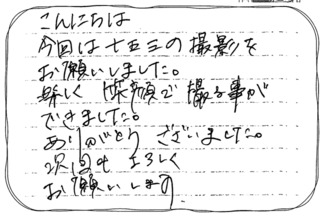 こんにちは
今回は七五三の撮影を
お願いしました。
楽しく 笑顔で 撮る事が
できました。
ありがとう ございました。
次回も よろしく
お願いします